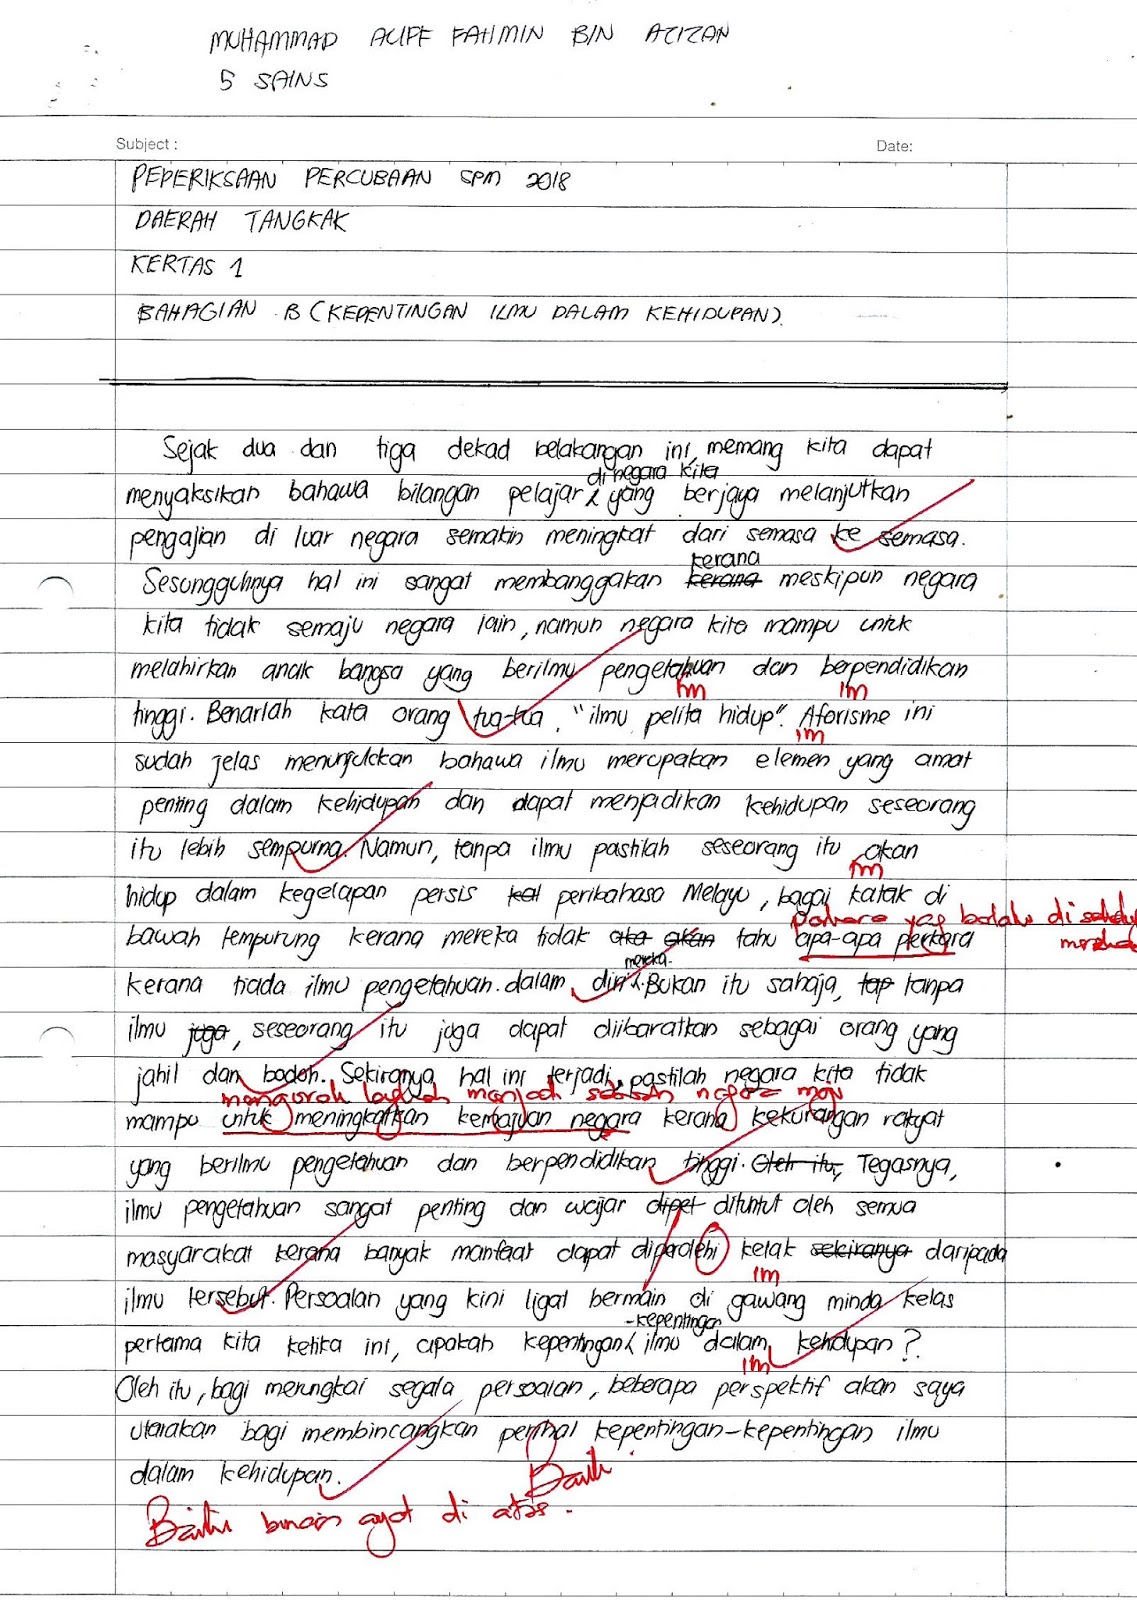 MUHAMMAD ALIFF FAHMIN BIN AZIZAN
5 SAINS
Subject : Date:
PEPERIKSAAN PERCUBAAN SPM 2018
DAERAH TANGKAK
KERTAS 1
BAHAGIAN B (KEPENTINGAN ILMU DALAM KEHIDUPAN).
Sejak dua dan tiga dekad belakangan ini, memang kita dapat
di negara kita
menyaksikan bahawa bilangan pelajar yang berjaya melanjutkan
pengajian di luar negara semakin meningkat dari semasa ke semasa.
kerana
Sesungguhnya hal ini sangat membanggakan kerana meskipun negara
kita tidak semaju negara lain, namun negara kita mampu untuk
melahirkan anak bangsa yang berilmu pengetahuan dan berpendidikan
im im
tinggi. Benarlah kata orang tua-tua, "ilmu pelita hidup". Aforisme ini
im
sudah jelas menunjukkan bahawa ilmu merupakan elemen yang amat
penting dalam kehidupan dan dapat menjadikan kehidupan seseorang
itu lebih sempurna. Namun, tanpa ilmu pastilah seseorang itu akan
im
hidup dalam kegelapan persis peribahasa Melayu, bagai katak di
yg di
bawah tempurung kerana mereka tidak akan tahu apa-apa perkara
mereka.
kerana tiada ilmu pengetahuan dalam diri. Bukan itu sahaja, tap tanpa
ilmu juga, seseorang itu juga dapat diibaratkan sebagai orang yang
jahil dan bodoh. Sekiranya hal ini terjadi, pastilah negara kita tidak
menjadi negara maju
mampu untuk meningkatkan kemajuan negara kerana kekurangan rakyat
yang berilmu pengetahuan dan berpendidikan tinggi. Oleh itu, Tegasnya,
ilmu pengetahuan sangat penting dan wajar dipet dituntut oleh semua
masyarakat kerana banyak manfaat dapat diperolehi kelak sekiranya daripada
im
ilmu tersebut. Persoalan yang kini ligat bermain di gawang minda kelas
-kepentingan
pertama kita ketika ini, apakah kepentingan ilmu dalam kehidupan?
im
Oleh itu, bagi merungkai segala persoalan, beberapa perspektif akan saya
utarakan bagi membincangkan perihal kepentingan-kepentingan ilmu
dalam kehidupan.
Baiki
Baiki binaan ayat di atas.